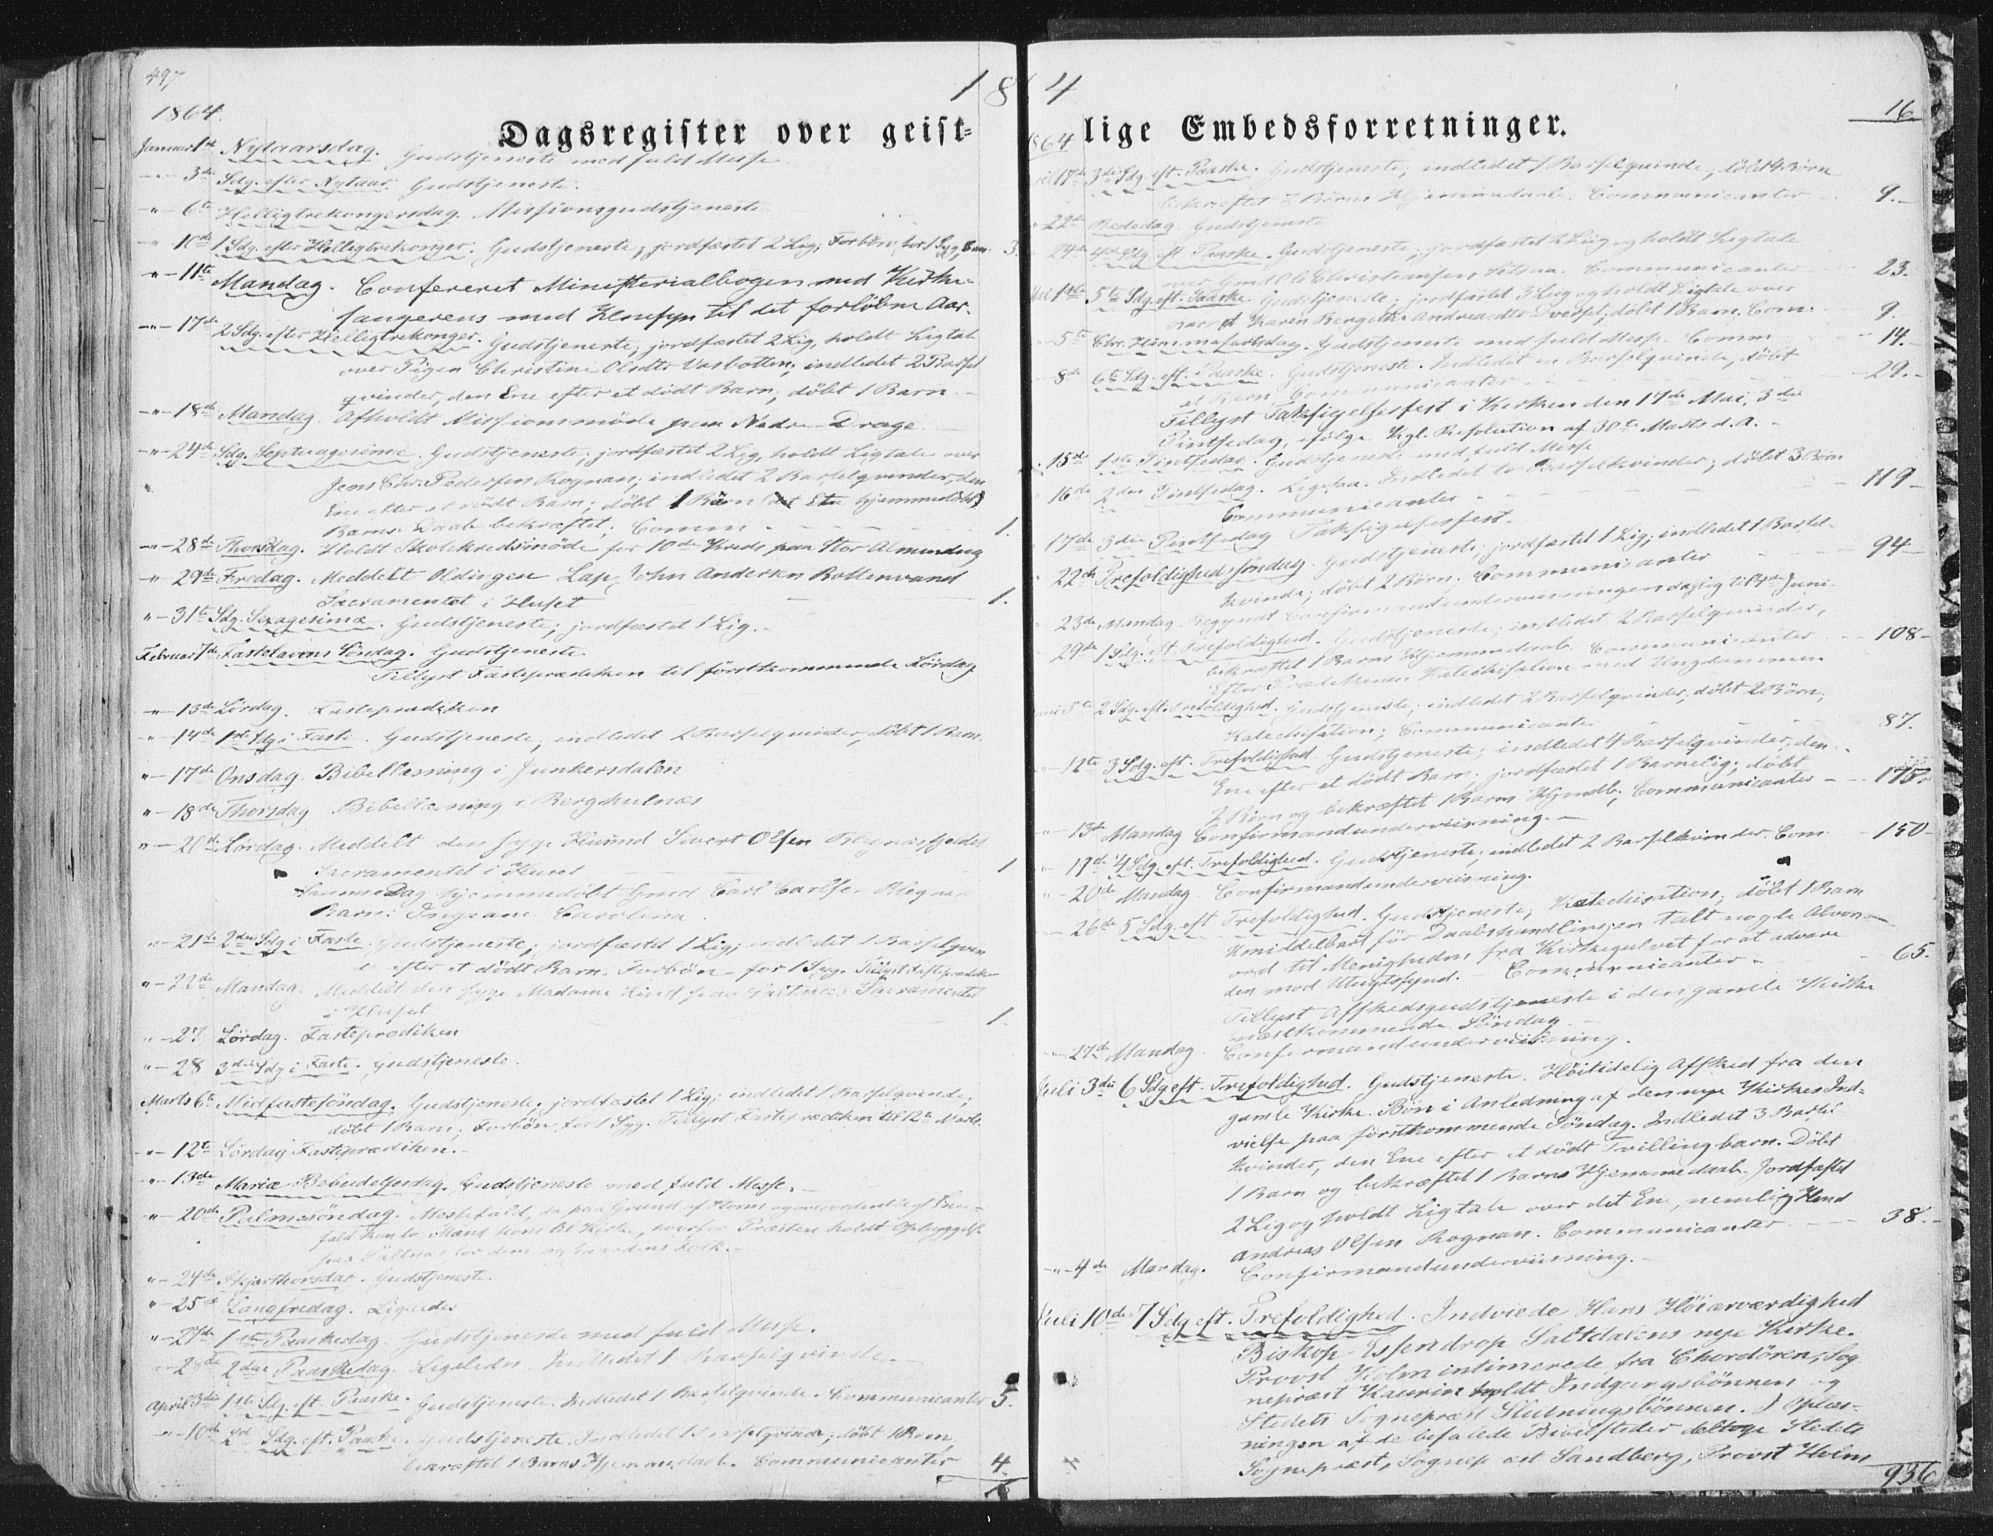 497
1864
1864.
Dagsregister over geist-
Januar 1ste Nytaarsdag. Gudstjeneste med fuld Messe.
" 3de Sdg. efter Nytaar. Gudstjeneste.
" 6te Helligtrekongersdag. Missionsgudstjeneste
" 10de 1 Sdg. efter Helligtrekonger. Gudstjeneste, jordfæstet 2 Lig, Forbøn for 1 Syg, 3
" 11te Mandag. Confereret Ministerialbogen med Kirke-
sangerens med Hensyn til det forløbne Aar.
" 17de 2 Sdg. efter Helligtrekonger. Gudstjeneste, jordfæstet 2 Lig, holdt Ligtale
over Pigen Christine Olsdtr Vasbotten, indledet 2 Barsel
qvinder, den Ene efter et dødt Barn, døbt 1 Barn.
" 18de Mandag. Afholdt Missionsmøde paa Nedre Drage.
" 24de Sdg. Septuagesima. Gudstjeneste, jordfæstet 2 Lig, holdt Ligtale over
Jens Chr. Pedersen Rognan; indledet 2 Barselqvinder, den
Ene efter et dødt Barn; døbt 1 Barn hjemmedøbt
Barns Daab bekræftet, Comm 1.
" 28de Thorsdag. Holdt Skolekredsmøde for 10de Kreds paa Stor Almindng
" 29de Fredag. Meddelt Oldingen Lap, John Andersen Bottenvand
Sacramentet i Huset 1.
" 31te Sdg. Sexagesima. Gudstjeneste; jordfæstet 1 Lig.
Februar 7de Fastelavens Søndag. Gudstjeneste.
Tillyst Fasteprædiken til førstkommende Lørdag
" 13de Lørdag. Fasteprædiken
" 14de 1ste Sdg i Faste. Gudstjeneste, indledet 2 Barselqvinder, døbt 1 Barn.
" 17de Onsdag. Bibellæsning i Junkersdalen
" 18de Thorsdag Bibellæsning i Berghulnæs
" 20de Lørdag. Meddelt den syge Huusmd Sivert Olsen
Sacramentet i Huset 1
Samme Dag hjemmedøbt Gmd Carl Carlsen
Barn: Ingeane Carolina.
" 21de 2den Sdg i Faste. Gudstjeneste, jordfæstet 1 Lig, indledet 1 Barselqvin
efter et dødt Barn. Forbøn for 1 Syg. Tillyst Fasteprædiken
" 22de Mandag. Meddelt den syge Madame Lind paa Saltnæs Sacramentet
i Huset 1.
" 27 Lørdag. Fasteprædiken
" 28 3die Sdg i Faste. Gudstjeneste.
Marts 6te Midfastesøndag. Gudstjeneste, jordfæstet 1 Lig, indledet 1 Barselqvinde,
døbt 1 Barn, Forbøn for 1 Syg. Tillyst Fasteprædiken til 12te Marts.
" 12te Lørdag Fasteprædiken.
" 13de Mariæ Bebudelsesdag. Gudstjeneste med fuld Messe.
" 20de Palmesøndag. Messefald, da paa Grund af Storm og overordentligt Snee-
fald kun to Mænd kom til Kirke, hvorfor Præsten holdt Opbyggelse
paa Saltnæs for dem og Gaardens Folk.
" 24de Skjærthorsdag. Gudstjeneste.
" 25de Langfredag. Ligeledes
" 27de 1ste Paaskedag. Gudstjeneste med fuld Messe.
" 28de 2den Paaskedag. Ligeledes. Indledet 1 Barselqvinde.
April 3die 1ste Sdg. eft. Paaske. Gudstjeneste. Indledet 1 Barselqvinde. Communicanter 5.
" 10de 2d Sdg. eft. Paaske. Gudstjeneste. Indledet 1 Barselqvinde; døbt 1 Barn,
bekræftet 1 Barns Hjemmedaab. Communicanter 4.
lige Embedsforretninger.
16
1864
April 17de 3die Sdg. eft. Paaske. Gudstjeneste; indledet 1 Barselqvinde, døbt 4 Børn
bekræftet 2 Børns Hjemmedaab. Communicanter 9.
" 22de Bededag. Gudstjeneste
" 24de 4de Sdg. eft. Paaske. Gudstjeneste, jordfæstet 2 Lig og holdt Ligtale
over Gmd Ole Christiansen Communicanter 23.
Mai 1ste 5te Sdg. eft. Paaske. Gudstjeneste, jordfæstet 3 Lig og holdt Ligtale over
Karen Bergitte Andreasdtr Dverset, døbt 1 Barn. Com. 9.
" 5te Chr. Himmelfartsdag. Gudstjeneste med fuld Messe. Comm 14.
" 8de 6te Sdg. eft. Paaske. Gudstjeneste. Indledet en Barselqvinde, døbt
et Barn, Communicanter 29.
Tillyst Taksigelsesfest i Kirken den 17de Mai, 3die
Pintsedag, ifølge Kgl. Resolution af 30te Marts d. A.
" 15de 1ste Pintsedag. Gudstjeneste med fuld Messe
" 16de 2den Pintsedag. Ligesaa. Indledet to Barselkvinder, døbt 3 Børn
Communicanter 119
" 17de 3die Pintsedag Taksigelsesfest.
" 22de Trefoldighedssøndag. Gudstjeneste, jordfæstet 1 Lig, indledet 1 Barsel-
kvinde, døbt 2 Børn. Communicanter 94
" 23de Mandag Begyndt Confirmandundervisningen daglig til Juni
" 29de 1 Sdg. eft. Trefoldighed. Gudstjeneste; indledet 2 Barselqvinder,
bekræftet 1 Barns Hjemmedaab. Communicanter 108
Efter Prædikenen Katechisation med Ungdommen.
Juni 5te 2 Sdg. eft. Trefoldighed. Gudstjeneste; indledet 2 Barselqvinder, døbt 2 Børn,
Katechisation; Communicanter 87.
" 12te 3 Sdg. eft. Trefoldighed. Gudstjeneste; indledet 4 Barselqvinder, den
Ene efter et dødt Barn; jordfæstet 1 Barnelig; døbt
2 Børn og bekræftet 1 Barns Hjmdb, Communicanter 175
" 13de Mandag Confirmandundervisning.
" 19de 4 Sdg. eft. Trefoldighed. Gudstjeneste, indledet 2 Barselkvinder. Com 150
" 20de Mandag Confirmandundervisning.
" 26de 5 Sdg. eft. Trefoldighed. Gudstjeneste; Katechisation; døbt 1 Barn
Umiddelbart før Daabshandlingen talt nogle Alvors-
ord til Menigheden fra Kirkegulvet for at advare
den mod Utugtssynd. Communicanter 65.
Tillyst Afskedsgudstjeneste i den gamle Kirke
næstkommende Søndag.
" 27de Mandag. Confirmandundervisning.
Juli 3die 6 Sdg eft. Trefoldighed. Gudstjeneste. Høitidelig Afsked fra den
gamle Kirke. Bøn i Anledning af den nye Kirkes Ind-
vielse paa førstkommende Søndag. Indledet 3 Barsel
kvinder, den Ene efter et dødt Tvillingbarn. Døbt
1 Barn og bekræftet 1 Barns Hjemmedaab. Jordfæstet
2 Lig og holdt Ligtale over det Ene, nemlig Hmd
Andreas Olsen Rognan. Communicanter 38.
" 4de Mandag. Confirmandundervisning.
Juli 10de 7 Sdg eft. Trefoldighed. Indviede Hans Høiærværdighed
Biskop Essendrop Saltdalens nye Kirke.
Provst Holm intimerede fra Chordøren, Sog
nepræst Kaurin holdt Indgangsbønnen og
Stedets Sognepræst Slutningsbønnen. I Oplæs-
ningen af de befalede Bibelsteder deltoge Stedets
Sognepræst, Sognepræst Sandberg, Provst Holm
936